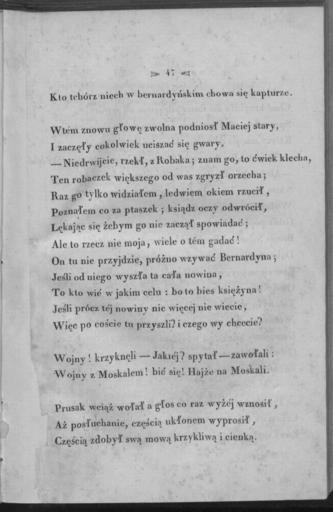 47
Kto tchórz niech w bernardyńskim chowa się kapturze.
Wtém znowu głowę zwolna podniosł Maciej stary,
I zaczęły cokolwiek uciszać się gwary.
— Niedrwijcie, rzekł, z Robaka; znam go, to ćwiek klecha,
Ten robaczek większego od was zgryzł orzecha;
Raz go tylko widziałem, ledwiem okiem rzucił,
Poznałem co za ptaszek; ksiądz oczy odwrócił,
Lękając się żebym go nie zaczął spowiadać;
Ale to rzecz nie moja, wiele o tém gadać!
On tu nie przyjdzie, próżno wzywać Bernardyna;
Jeśli od niego wyszła ta cała nowina,
To kto wié w jakim celu: bo to bies księżyna!
Jeśli prócz téj nowiny nic więcej nie wiecie,
Więc po coście tu przyszli? i czego wy chcecie?
Wojny! krzyknęli — Jakiéj? spytał — zawołali:
Wojny z Moskalem! bić się! Hajże na Moskali.
Prusak wciąż wołał a głos co raz wyżéj wznosił,
Aż posłuchanie, częścią ukłonem wyprosił,
Częścią zdobył swą mową krzykliwą i cienką.